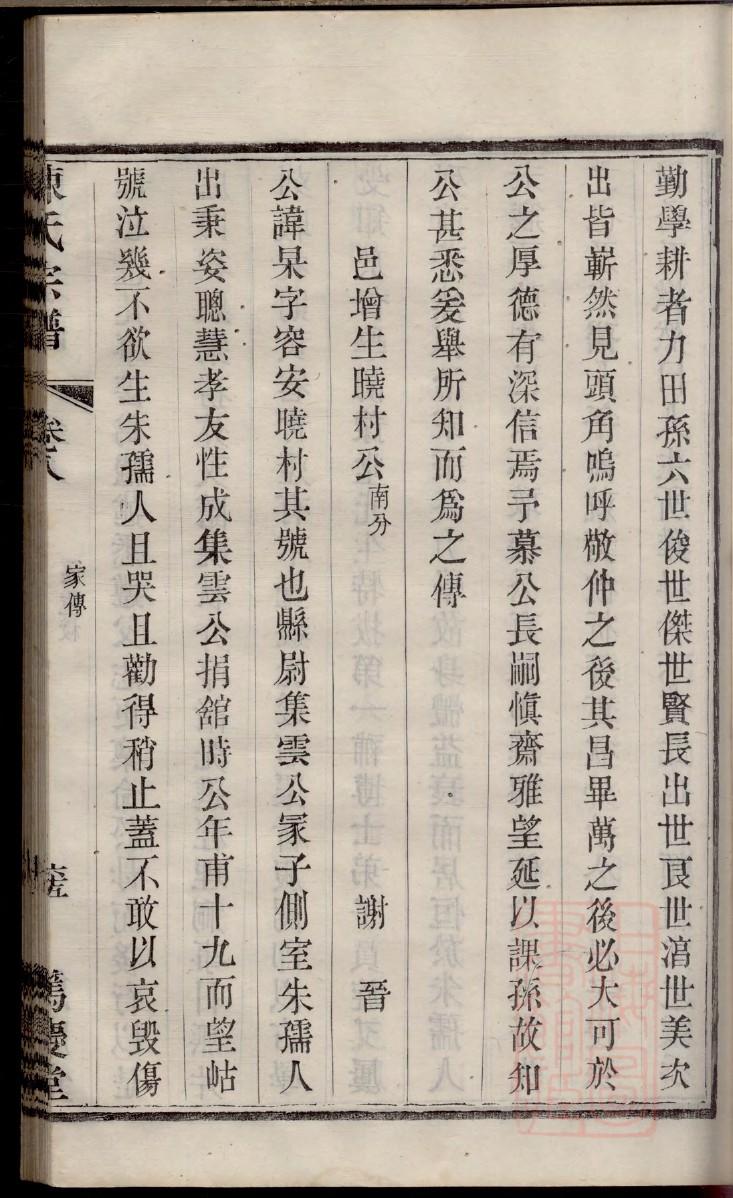 勤學耕者力田孫六世俊世傑世賢長出世艮世滈世美次
出皆嶄然見頭角嗚呼敬仲之後其昌畢萬之後必大可於
公之厚德有深信焉予慕公長嗣愼齋雅望延以課孫故知
公甚悉爰舉所知而爲之傳
邑增生曉村公南分 謝晉
公諱杲字容安曉村其號也縣尉集雲公冢子側室朱孺人
出秉姿聰慧孝友性成集雲公捐舘時公年甫十九而望岵
號泣幾不欲生朱孺人且哭且勸得稍止蓋不敢以哀毀傷
陳氏宗譜 卷八 家傳 篤慶堂